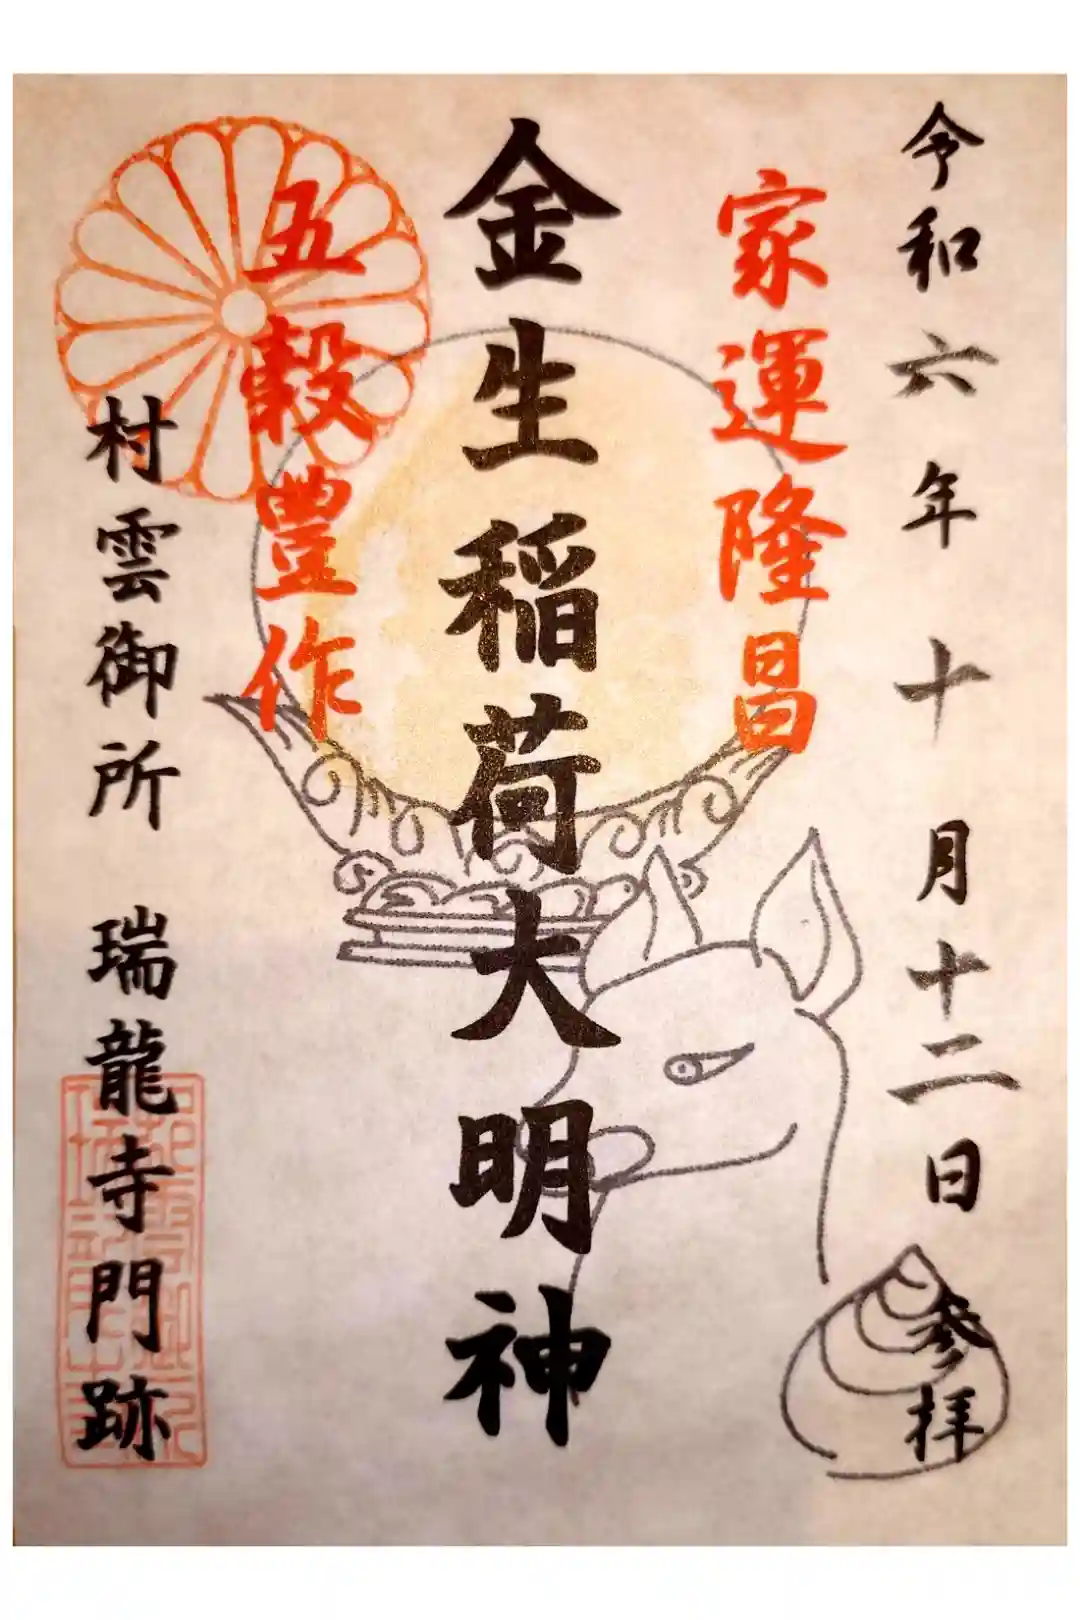 令和六年十月十二日参拝
家運隆昌
金生稲荷大明神
五穀豊作
村雲御所 瑞龍寺門跡